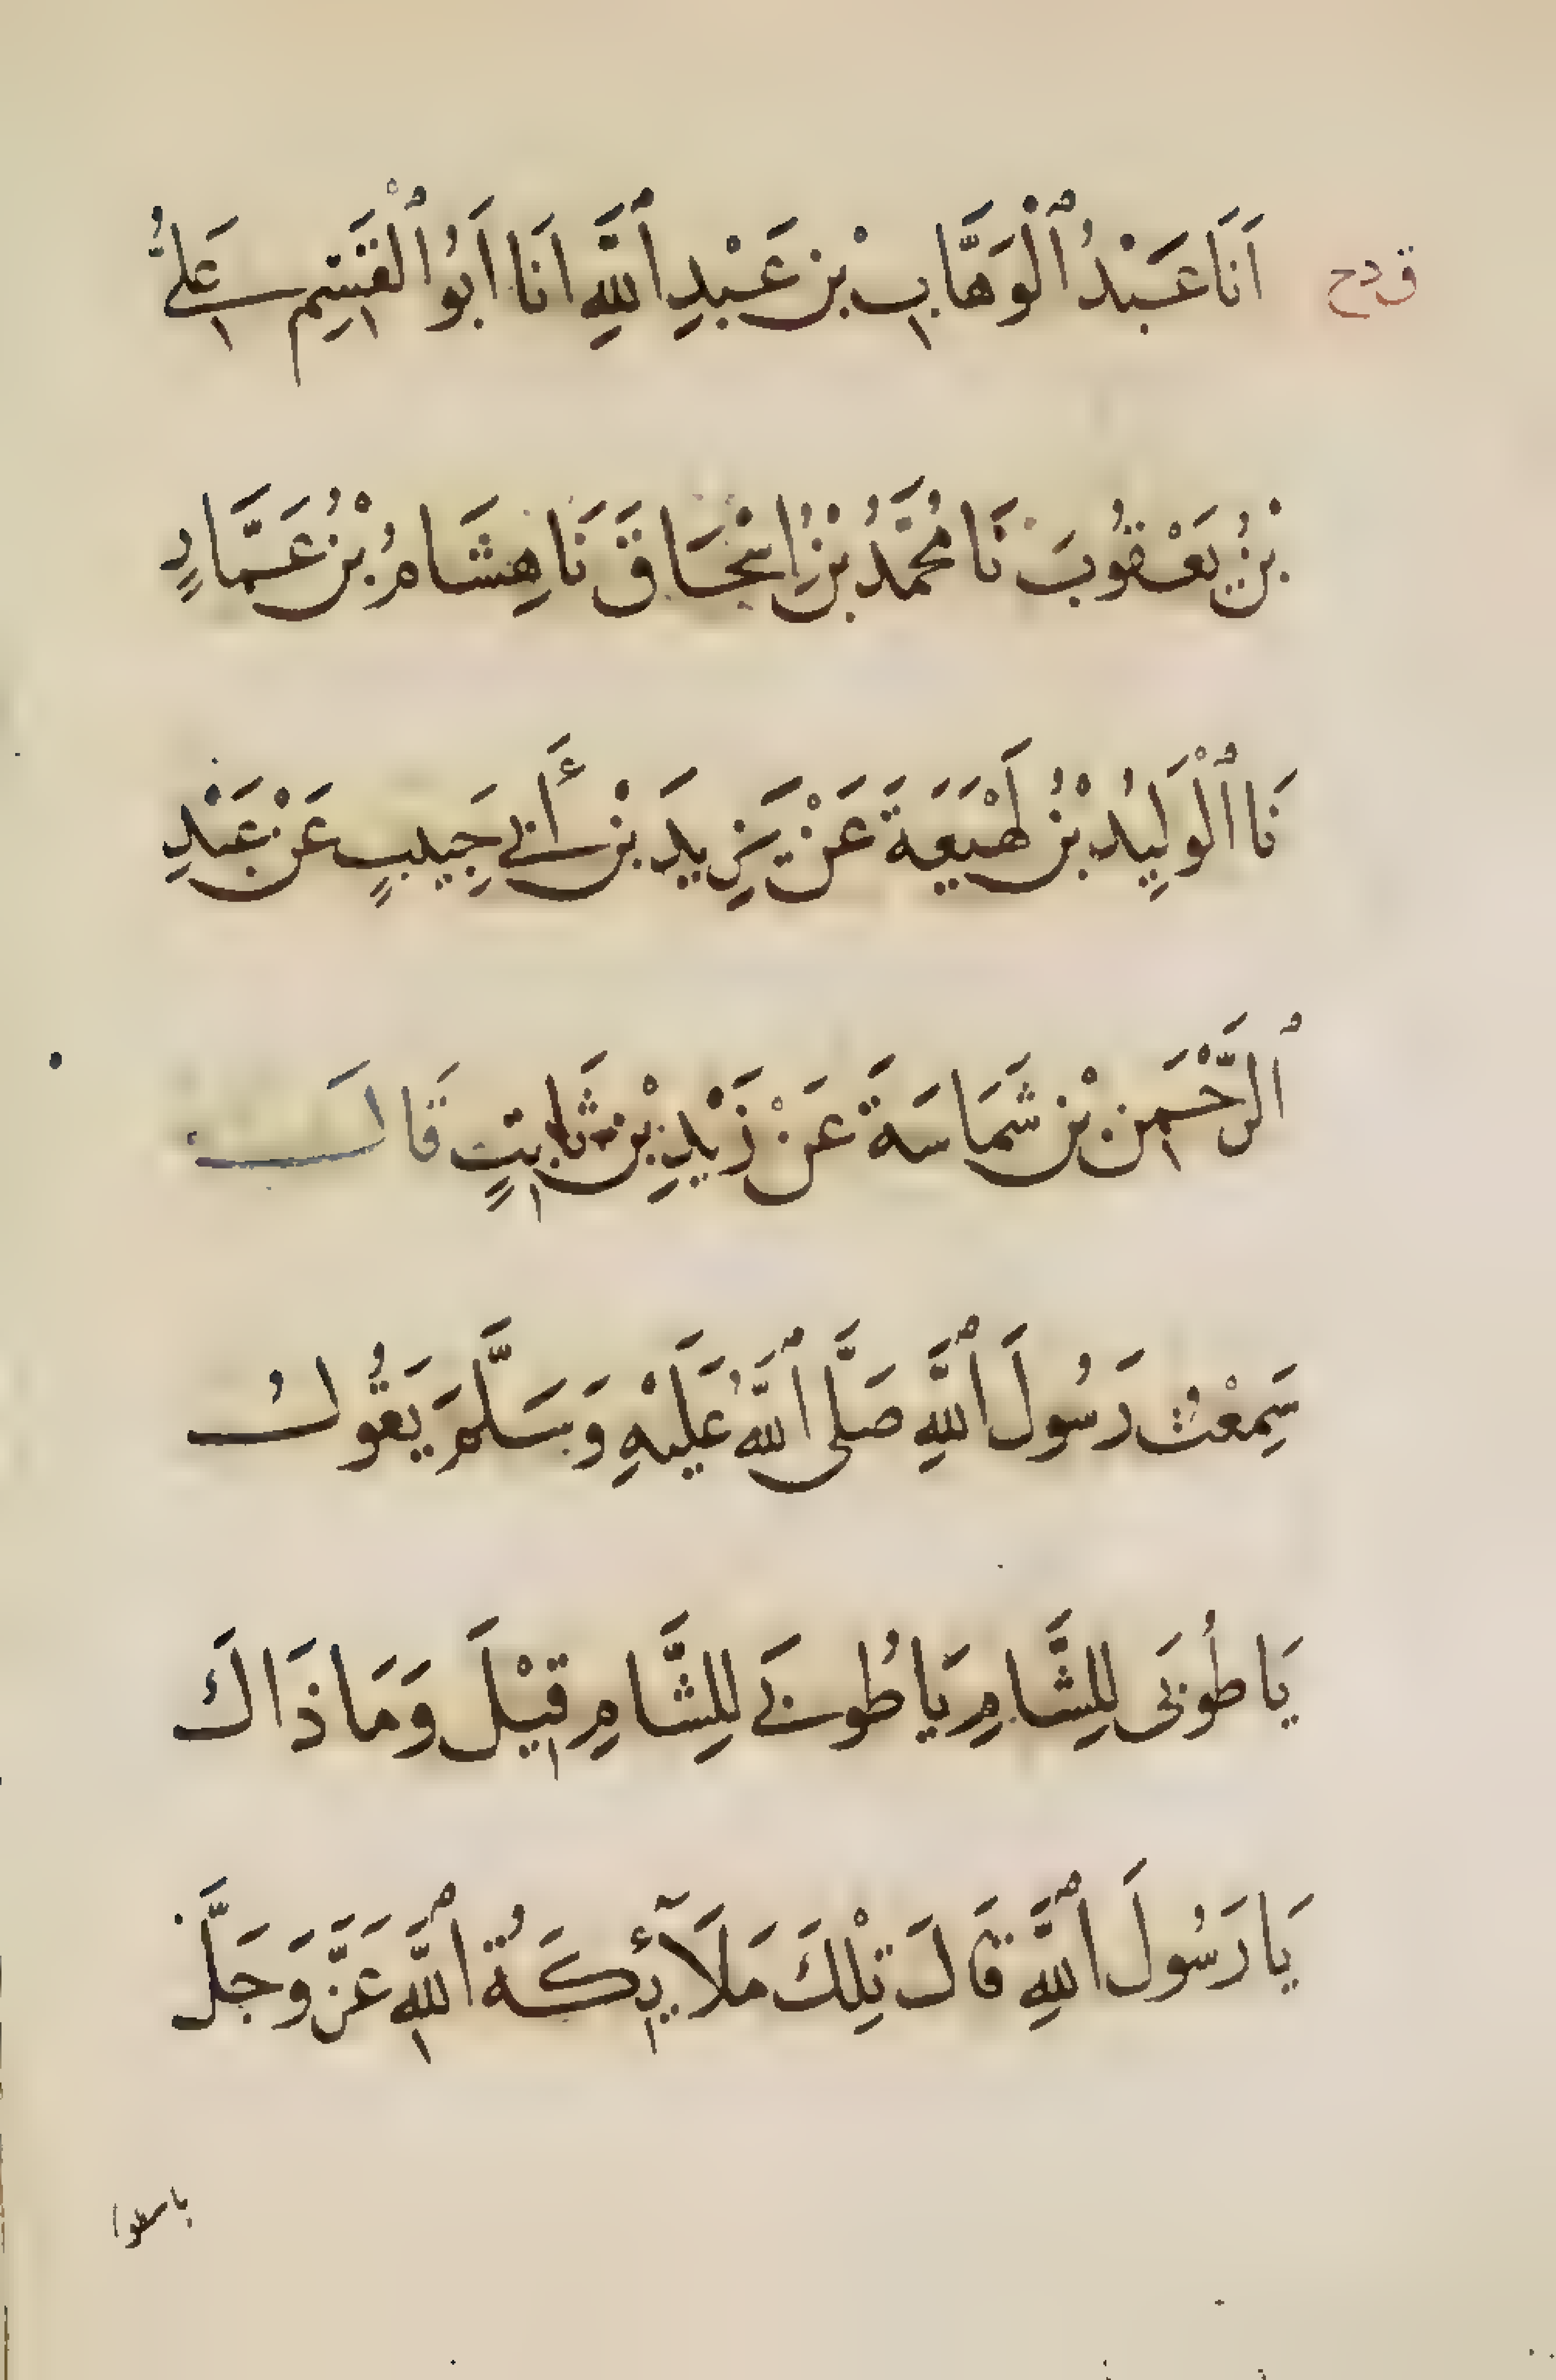 ق دح
اَنَا عَبْدُ ٱلْوَهَّابِ بْنِ عَبْدِ ٱللَّهِ اَنَا اَبُو ٱلْقَسِمِ عَلِيُّ
بْنُ يَعْقُوبَ نَا مُحَمَّدُ بْنُ اِسْحَاقَ نَا هِشَامُ بْنُ عَمَّارٍ
نَا ٱلْوَلِيدُ بْنُ لَهْيَعَةَ عَنْ يَزِيدَ بْنِ أَبِي حَبِيبٍ عَنْ عَبْدِ
ٱلرَّحْمَنِ بْنِ شَمَاسَةَ عَنْ زَيْدِ بْنِ ثَابِتٍ قَالَ
سَمِعْتُ رَسُولَ ٱللَّهِ صَلَّى ٱللَّهُ عَلَيْهِ وَسَلَّمَ يَقُولُ
يَا طُوبَى لِلشَّامِ يَا طُوبَى لِلشَّامِ قِيْلَ وَمَا ذَاكَ
يَا رَسُولَ ٱللَّهِ قَالَ تِلْكَ مَلَآئِكَةُ ٱللَّهِ عَزَّ وَجَلَّ
باسطوا